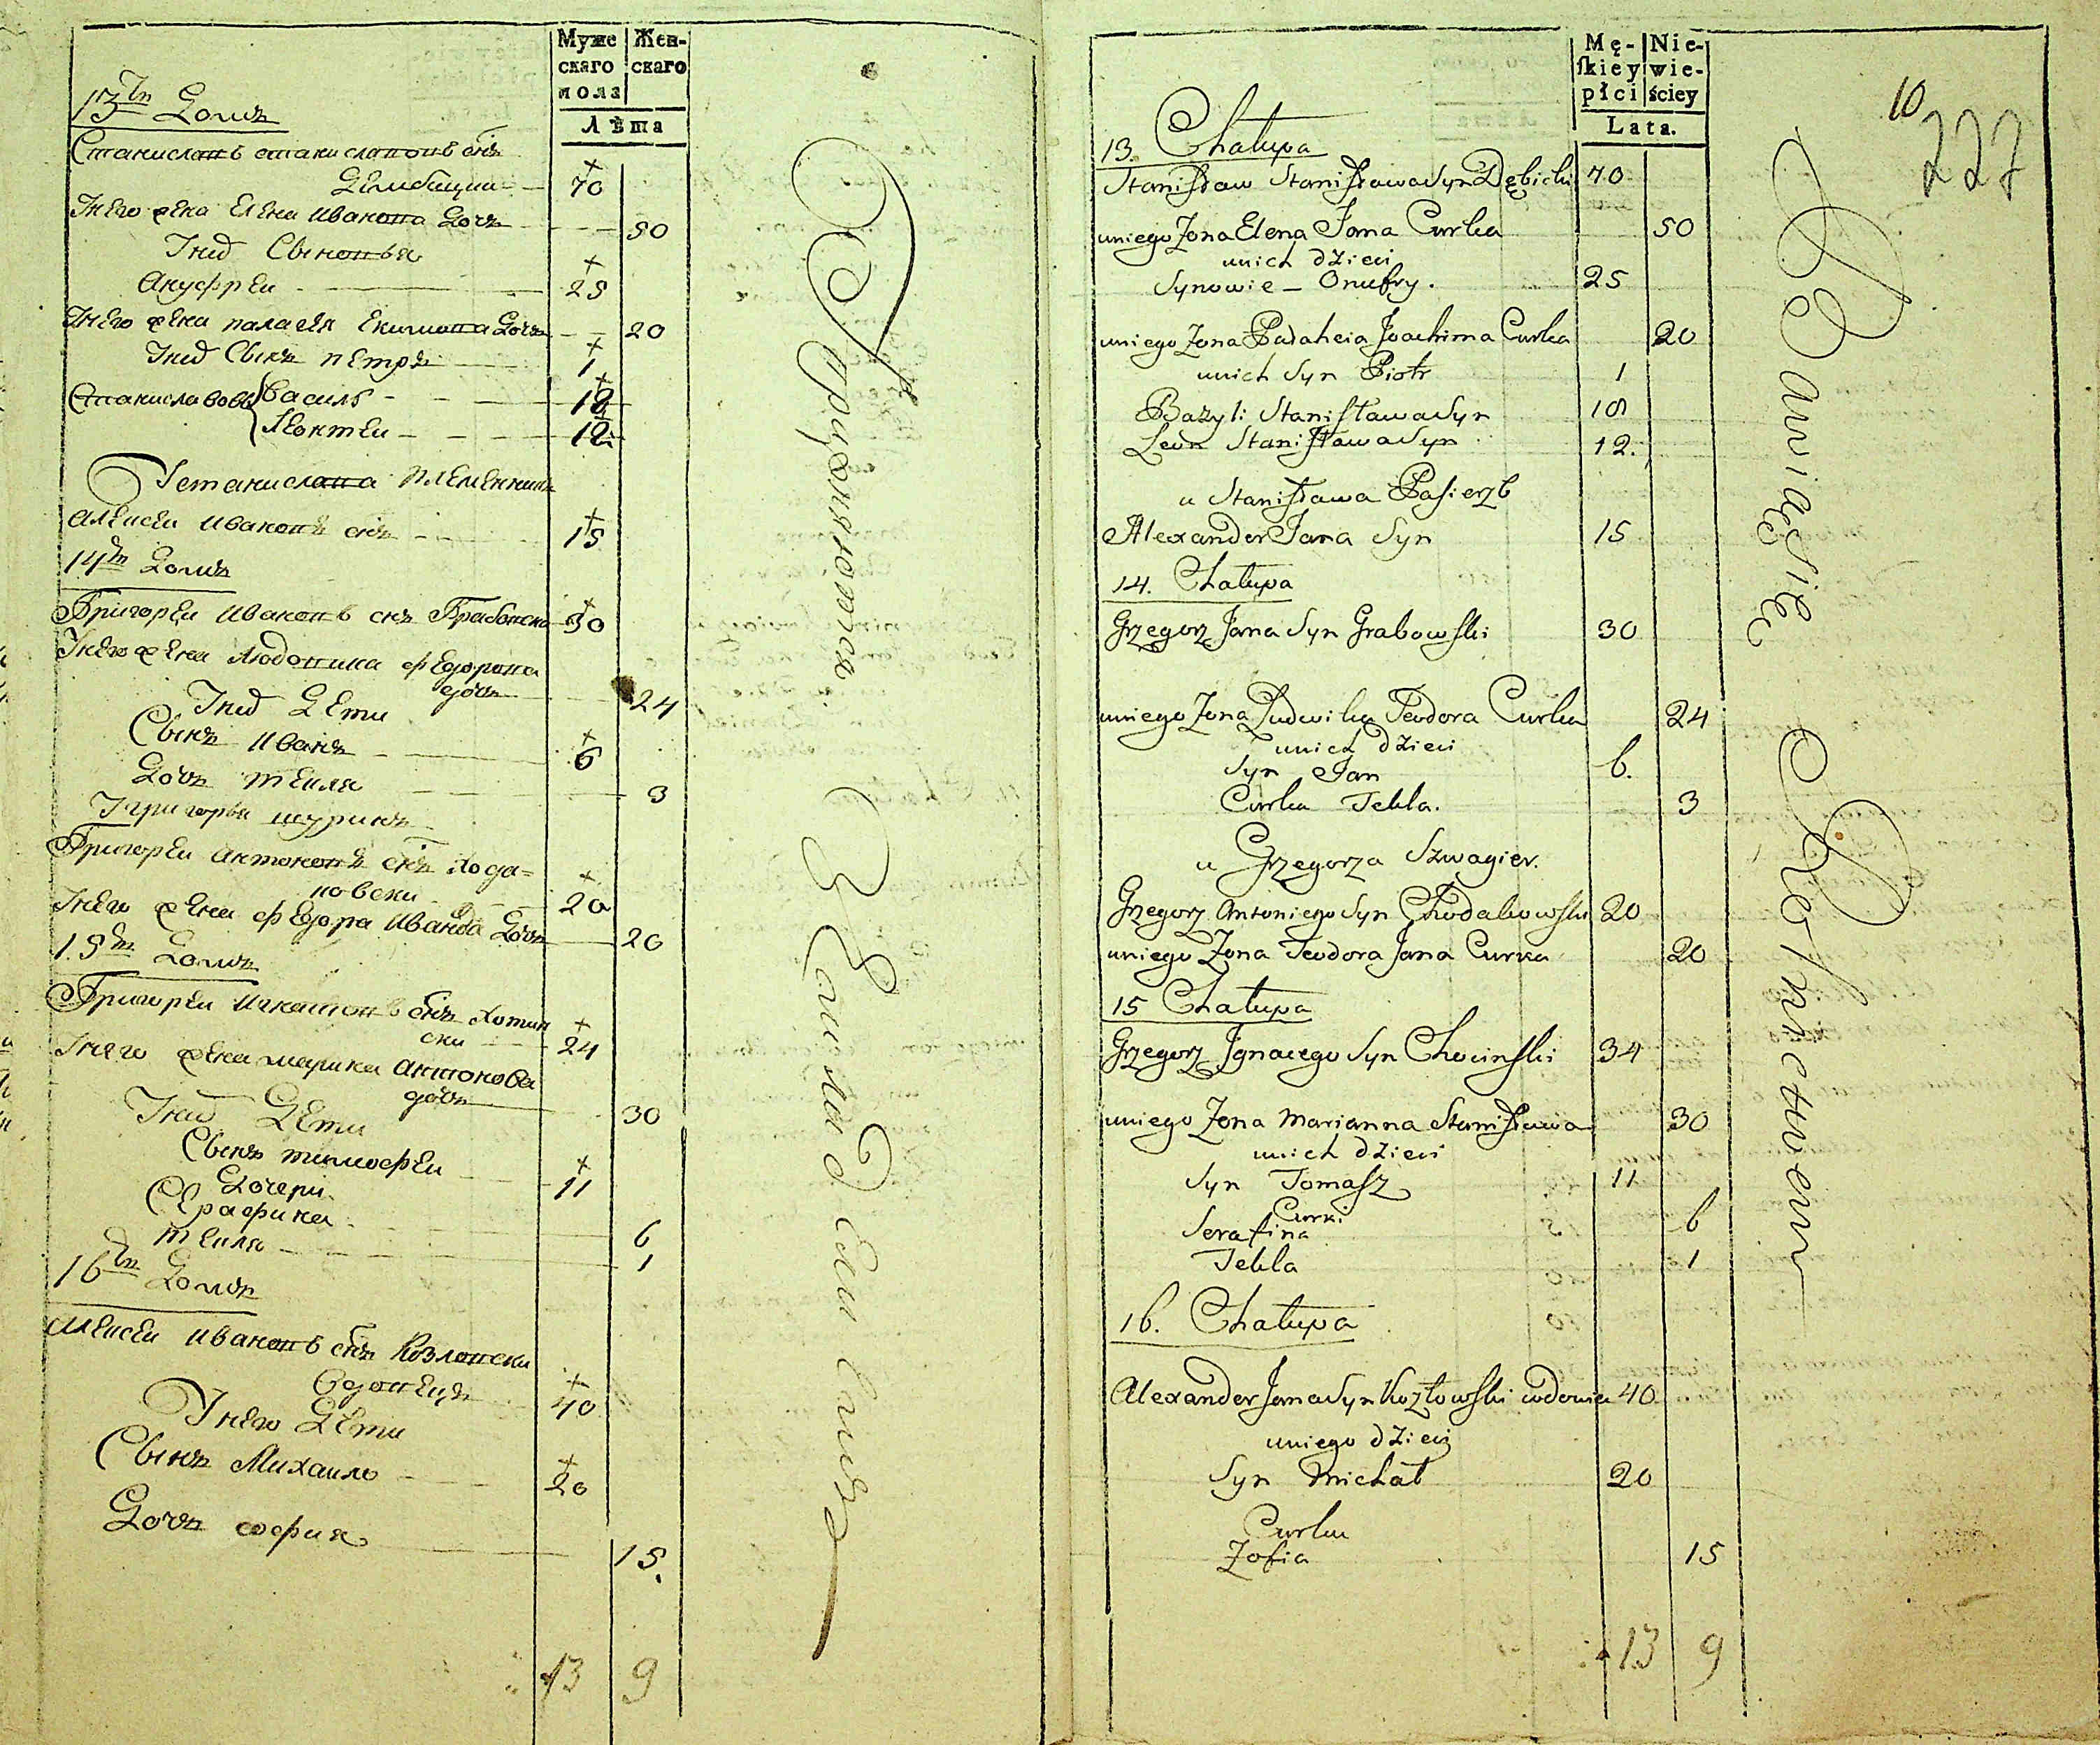 Муже
скаго
пола
Жен-
скаго
Лѣта
13й Домъ
Станиславъ станиславовъ снъ
Дембицки
70
Унего жена Елена Иванова Дочь
50
Унихъ Сыновья
Ануфреи
25
Унего жена паласея Екимова Дочь
20
Унихъ Сынъ петръ
1
Станиславовы Василь
18
Леонтеи
12
Устанислава племенникъ
алексеи Ивановъ снъ
15
14й Домъ
Григореи Ивановъ снъ Грабовски
30
Унего жена людовика федорова
дочь
24
Унихъ Дети
Сынъ Иванъ
6
Дочь текля
3
Угригорья шуринъ
Григореи антоновъ снъ хода=
ковски
20
Унего жена федора Иванова Дочь
20
15й Домъ
Григореи Игнатовъ снъ хотин
ски
24
Унего жена марина антонова
дочь
30
Унихъ Дети
Сынъ тимофеи
11
Дочери
Серафина
6
текля
1
16й Домъ
алексеи Ивановъ снъ Козловски
вдовецъ
40
Унего Дети
Сынъ Михаило
20
Дочь софия
15.
13 9
Mę-
ſkiey
płci
Nie-
wie-
ściey
Lata.
10
227
13. Chałupa
Staniſław Staniſława Syn Dębicki 70
uniego Zona Elena Jana Curka 50
unich dzieci
Synowie – Onufry. 25
uniego Zona Palaheia Joachima Curka 20
unich Syn Piotr 1
Bazyli Staniſława Syn 18
Leon Staniſława Syn 12.
u Staniſława Paſierzb
Alexander Jana Syn 15
14. Chałupa
Grzegorz Jana Syn Grabowſki 30
uniego Zona Ludwika Teodora Curka 24
unich dzieci
Syn Jan 6.
Curka Tekla. 3
u Grzegorza Szwagier.
Grzegorz Antoniego Syn Chodakowſki 20
uniego Zona Teodora Jana Curka 20
15 Chałupa
Grzegorz Jgnacego Syn Chocinſki 34
uniego Zona Marianna Staniſława 30
unich dzieci
Syn Tomaſz 11
Curki
Serafina 6
Tekla 1
16. Chałupa
Alexander Jana Syn Kozłowſki wdowiec 40
uniego dzieci
Syn Michał 20
Curka
Zofia 15
13 9